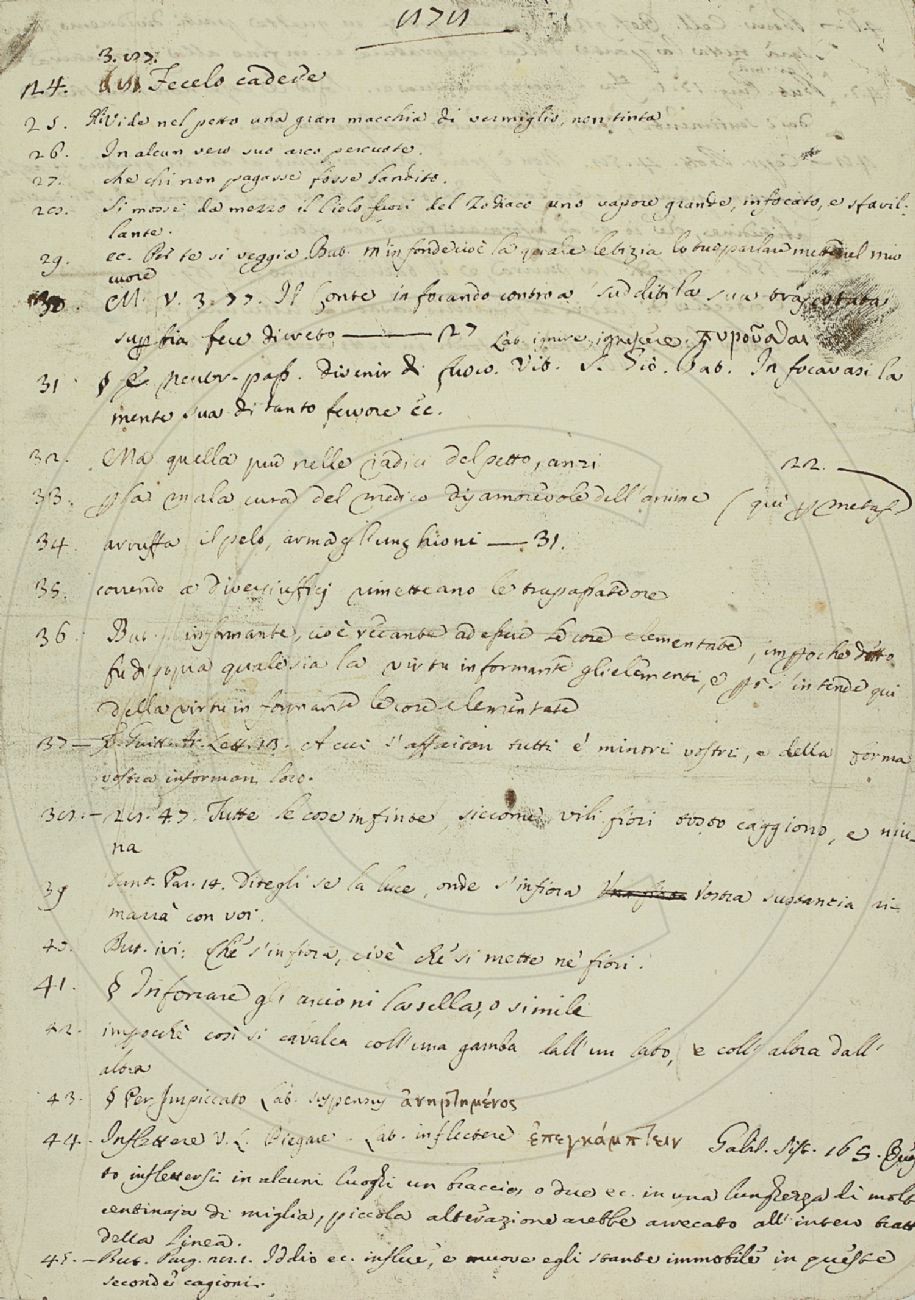 124. Fecelo cadere
25. Vide nel petto una gran macchia di vermiglio, non tinta
26. In alcun vero suo arco percuote.
27. che chi non pagasse fosse bandito.
28. Si mosse da mezzo il Cielo fuori del Zodiaco uno vapore grande, infocato, e sfavil-
lante.
29. ec. Per te si veggia. But. m'infonde cioè la quale letizia lo tuo parlare mette nel mio
cuore
30. M. V. 3. 77. Il Conte infocando contro a' sudditi la sua
fece divieto — 27 Lat. ignescere. πυροῦσθαι
31 § E neutr. pass. Divenir di fuoco. Vit. S. Gio. Bat. Infocavasi la
mente sua di tanto fervore ec.
32. Ma quella più nelle radici del petto, anzi 22. —
33. mala cura del medico disamorevole dell'anime (qui
34 arruffa il pelo, arma gli unghioni — 31.
35. correndo a diversi uffici rimetteano le trapassate ore
36. But. informante, cioè recante ad essere le cose elementate, imperocchè detto
fu di sopra quale sia la virtù informante gli elementi, e però intende qui
della virtù informante le cose elementate
37 — Fr. Guitt. A. Lett. 13. A cui s'affaitan tutti e' minori vostri, e della forma
vostra informan loro.
38. — 28. 47. Tutte le cose infinte, siccome vili fiori tosto caggiono, e niu-
na
39 Dant. Par. 14. Ditegli se la luce, onde s'infiora vostra sustanzia ri-
marrà con voi.
40. But. ivi: Che s'infiora, cioè che si mette ne' fiori.
41. § Inforcare gli arcioni la sella, o simili
42. imperocchè così si cavalca coll'una gamba dall'un lato, e coll'altra dall'
altra
43. § Per Impiccato Lat. suspensus ἀνηρτημένος
44. Inflettere V. L. Piegare. Lat. inflectere ἐπεγκάμπτειν Galil. Sist. 165.
to inflettersi in alcuni luoghi un braccio, o due ec. in una lunghezza di molte
centinaja di miglia, piccola alterazione arebbe arrecato all'intero tratto
della linea.
45. — But. Purg. Iddio ec. influe, e muove egli stante immobile in queste
seconde cagioni.